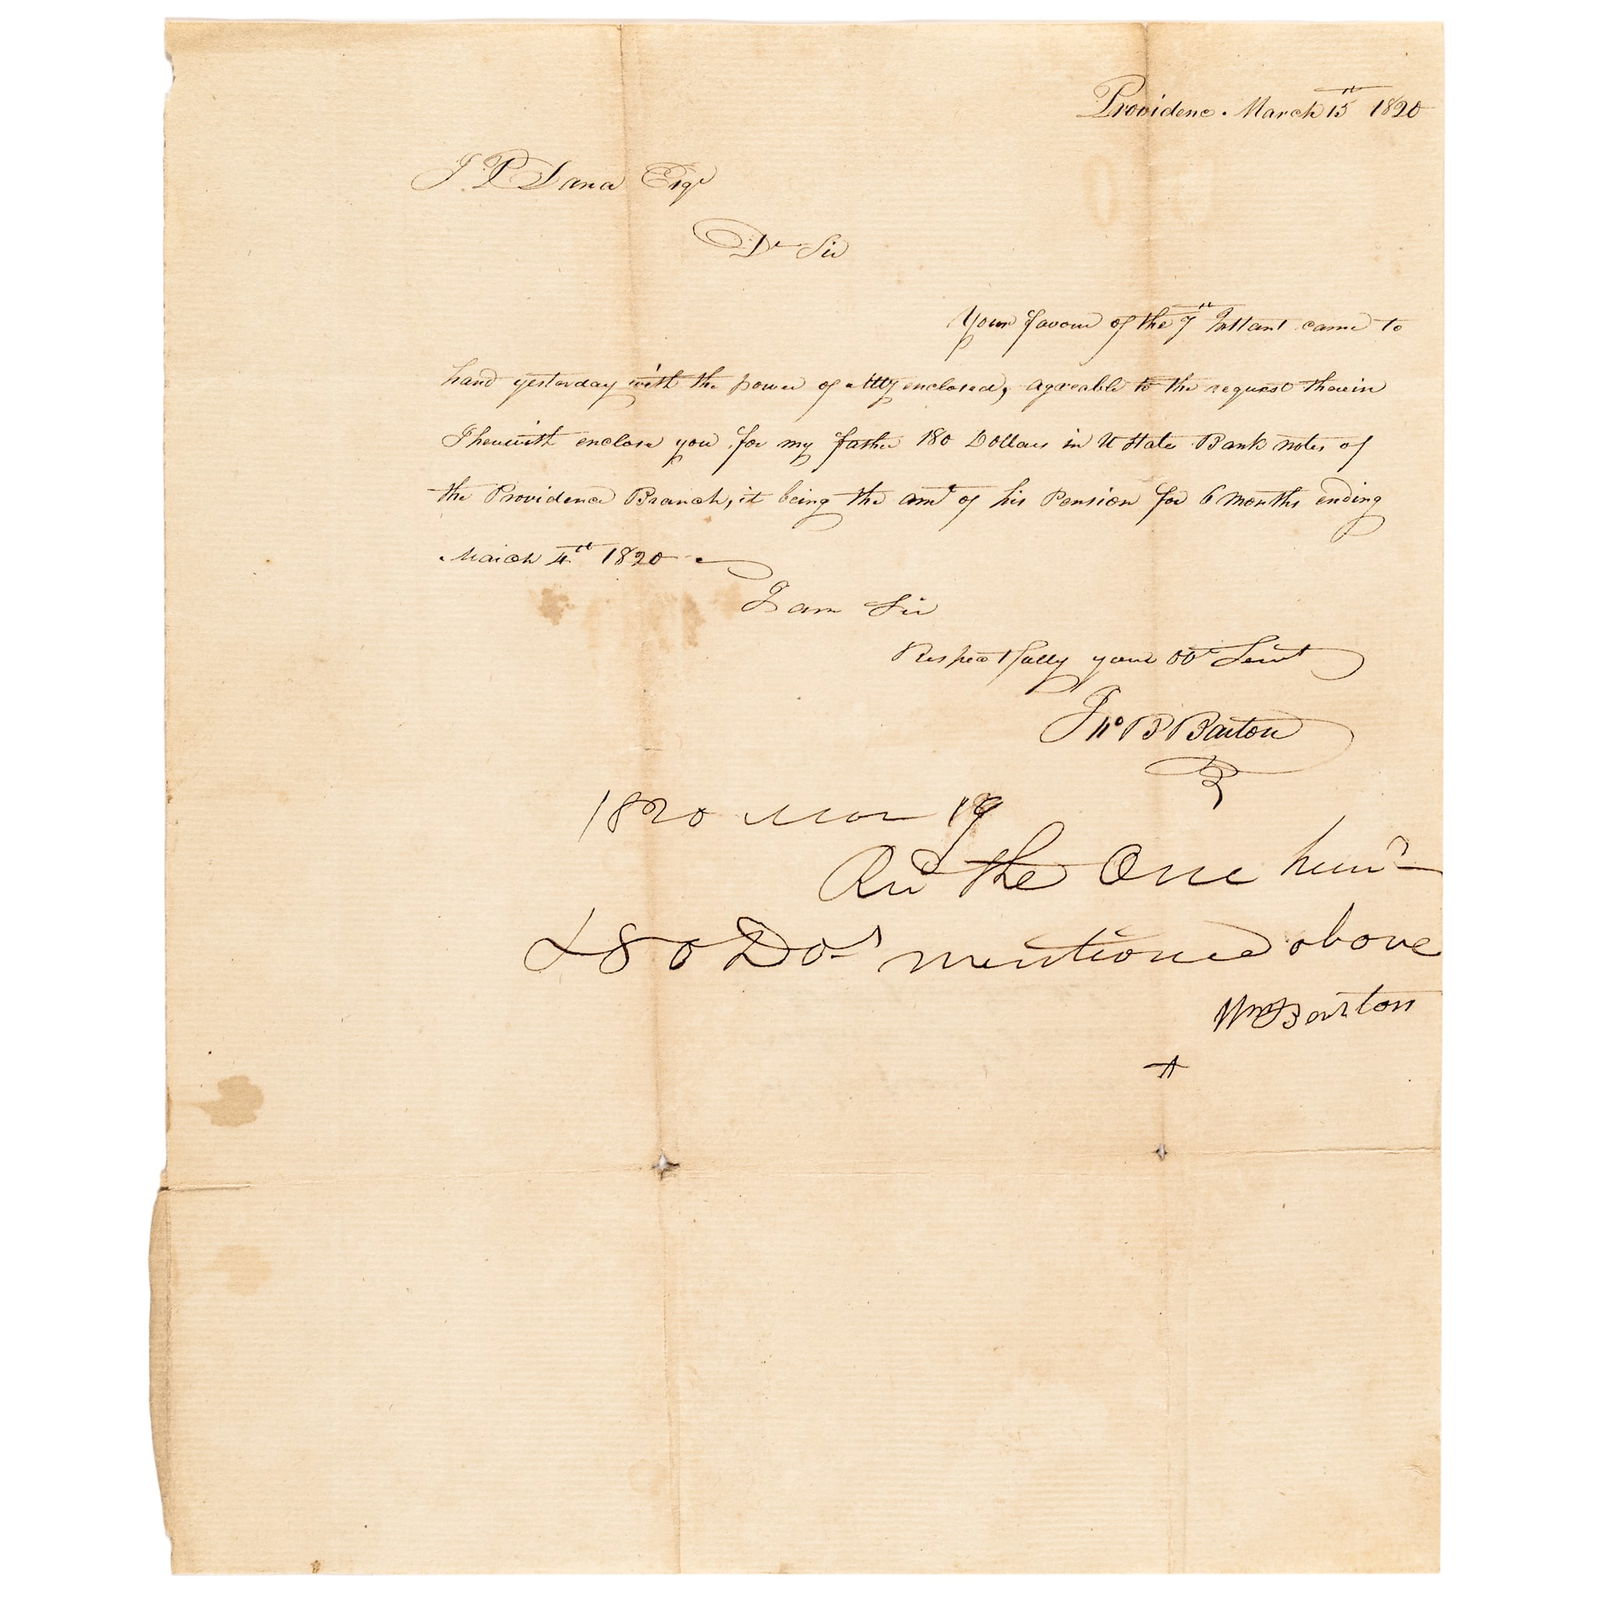 Providenc. March 15th 1820
J. P Dana Esqr
Dr Sir
Your favour of the 7th Instant came to
hand yesterday with the power of atty enclosed, agreable to the request therein
I herewith enclose you for my father 180 Dollars in U State Bank notes of
the Providence Branch, it being the amt of his Pension for 6 months ending
March 4th 1820
I am Sir
Respectfully your Obt Servt
Jno B Barton
1820 Mar 19
Recd the One hund
& 80 Dos mentioned above
Wm Barton